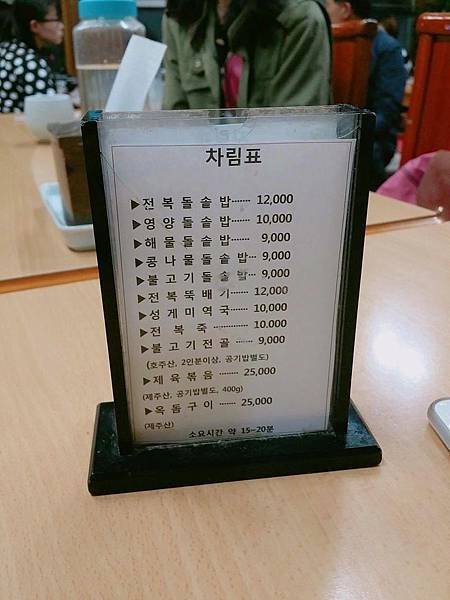 차림표
▶전복돌솥밥······· 12,000
▶영양돌솥밥······· 10,000
▶해물돌솥밥······· 9,000
▶콩나물돌솥밥··· 9,000
▶불고기돌솥밥··· 9,000
▶전복뚝배기······· 12,000
▶성게미역국······· 10,000
▶전 복 죽········· 10.000
▶불고기전골······· 9,000
(호주산, 2인분이상, 공기밥별도)
▶제육볶음········ 25,000
(제주산, 공기밥별도, 400g)
▶옥돔구이········ 25,000
(제주산)
소요시간 약 15-20분